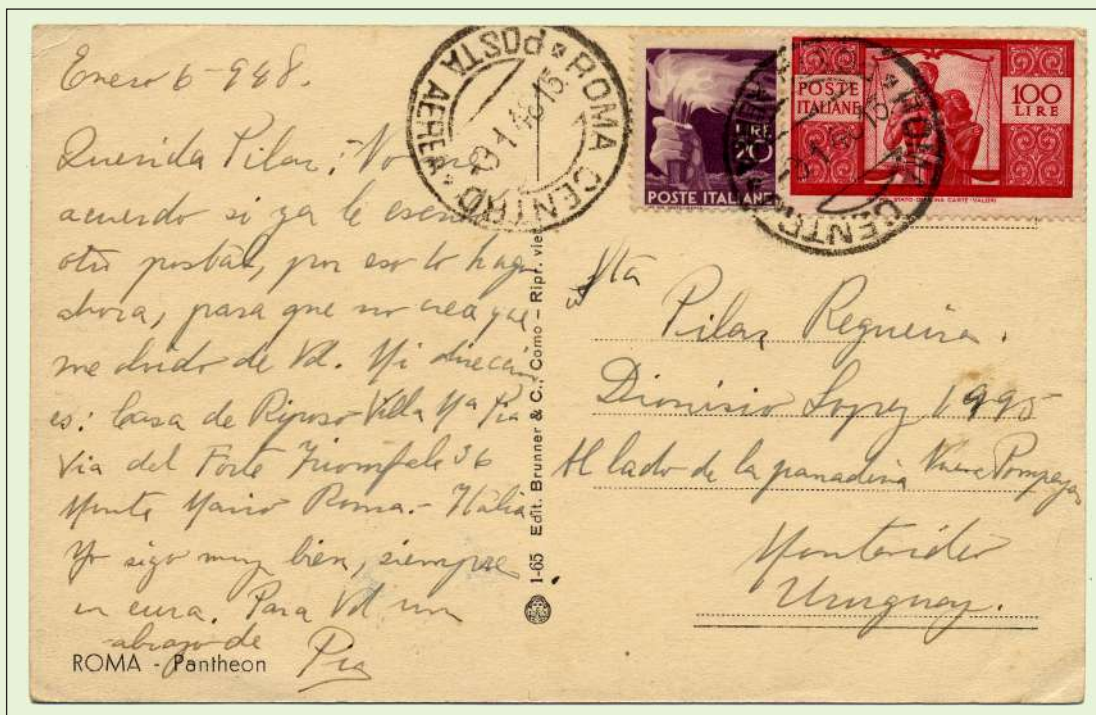 Enero 6-948.
Querida Pilar: No me
acuerdo si ya le escribí
otra postal, por eso lo hago
ahora, para que no crea que
me olvido de Vd. Mi dirección
es: Casa de Riposo Villa Mª Pia
Via del Forte Trionfale 36
Monte Mario Roma.- Italia
Yo sigo muy bien, siempre
en cura. Para Vd un
abrazo de
Pia
ROMA - Pantheon
1-65 Edit. Brunner & C., Como - Ripr. vie
ROMA CENTRO
POSTA AEREA
LIRE
20
POSTE ITALIANE
POSTE
ITALIANE
100
LIRE
ROMA CENTRO
Sta
Pilar Regueira.
Dionisio Lopez 1995
Al lado de la panaderia Nueva Pompeya
Montevideo
Uruguay.